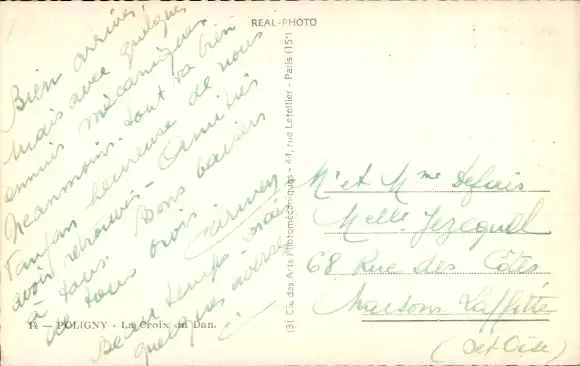 REAL-PHOTO
Bien arrivés,
Mais avec quelques
ennuis mécaniques
Neanmoins tout va bien
heureuse de nous
avoir retrouvés - Amitiés
à tous. Bons baisers
de tous trois
Carmen
Beau temps mais
quelques averses
14 — POLIGNY - La Croix du Dan.
(3) Cie des Arts Photomécaniques - 44, rue Letellier - Paris (15e)
Mr et Mme Defais
Melle Jezequel
68 Rue des Côtes
Maisons Laffitte
(S et Oise)